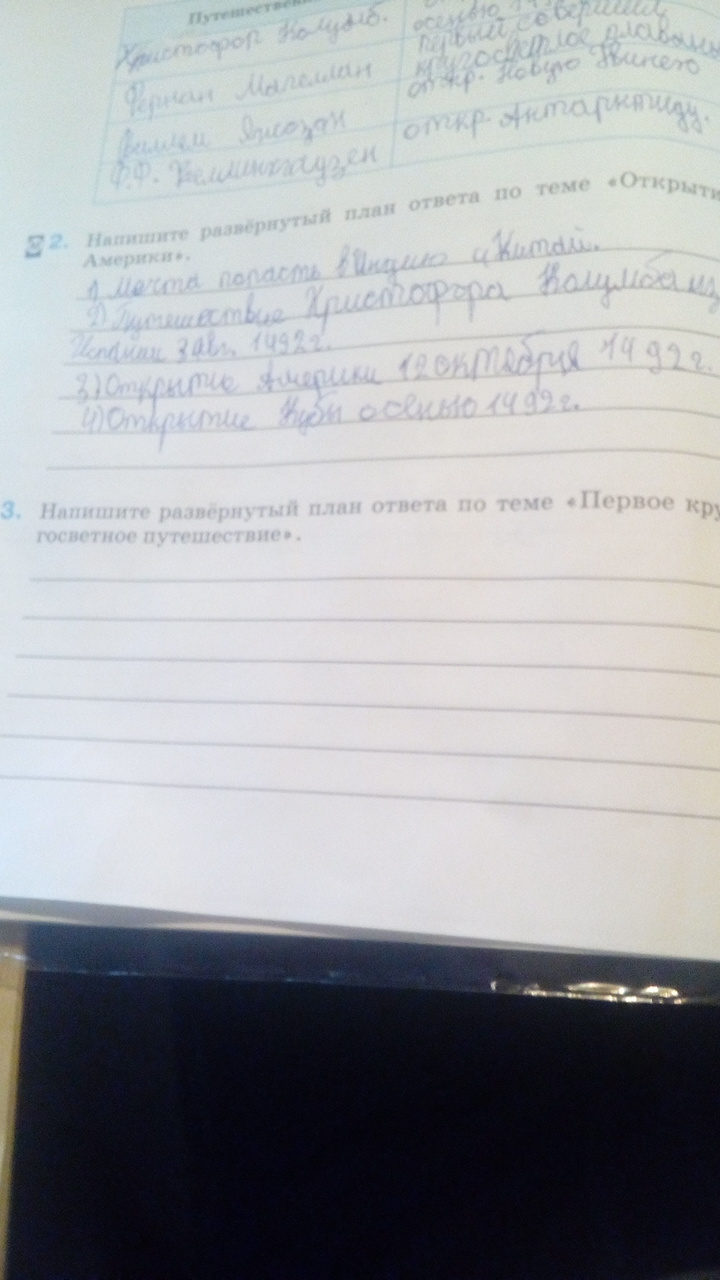 Путешествен
Христофор Колумб.
осенью
первый совершил
Фернан Магеллан
кругосветное плавание
откр. Новую Гвинею
Виллем Янсзон
откр. Антарктиду.
Ф.Ф. Беллинсгаузен
2. Напишите развёрнутый план ответа по теме «Открыти
Америки».
1) Мечта попасть в Индию и Китай.
2) Путешествие Христофора Колумба из
Испании 3 авг. 1492 г.
3) Открытие Америки 12 октября 1492 г.
4) Открытие Кубы осенью 1492 г.
3. Напишите развёрнутый план ответа по теме «Первое кру
госветное путешествие».